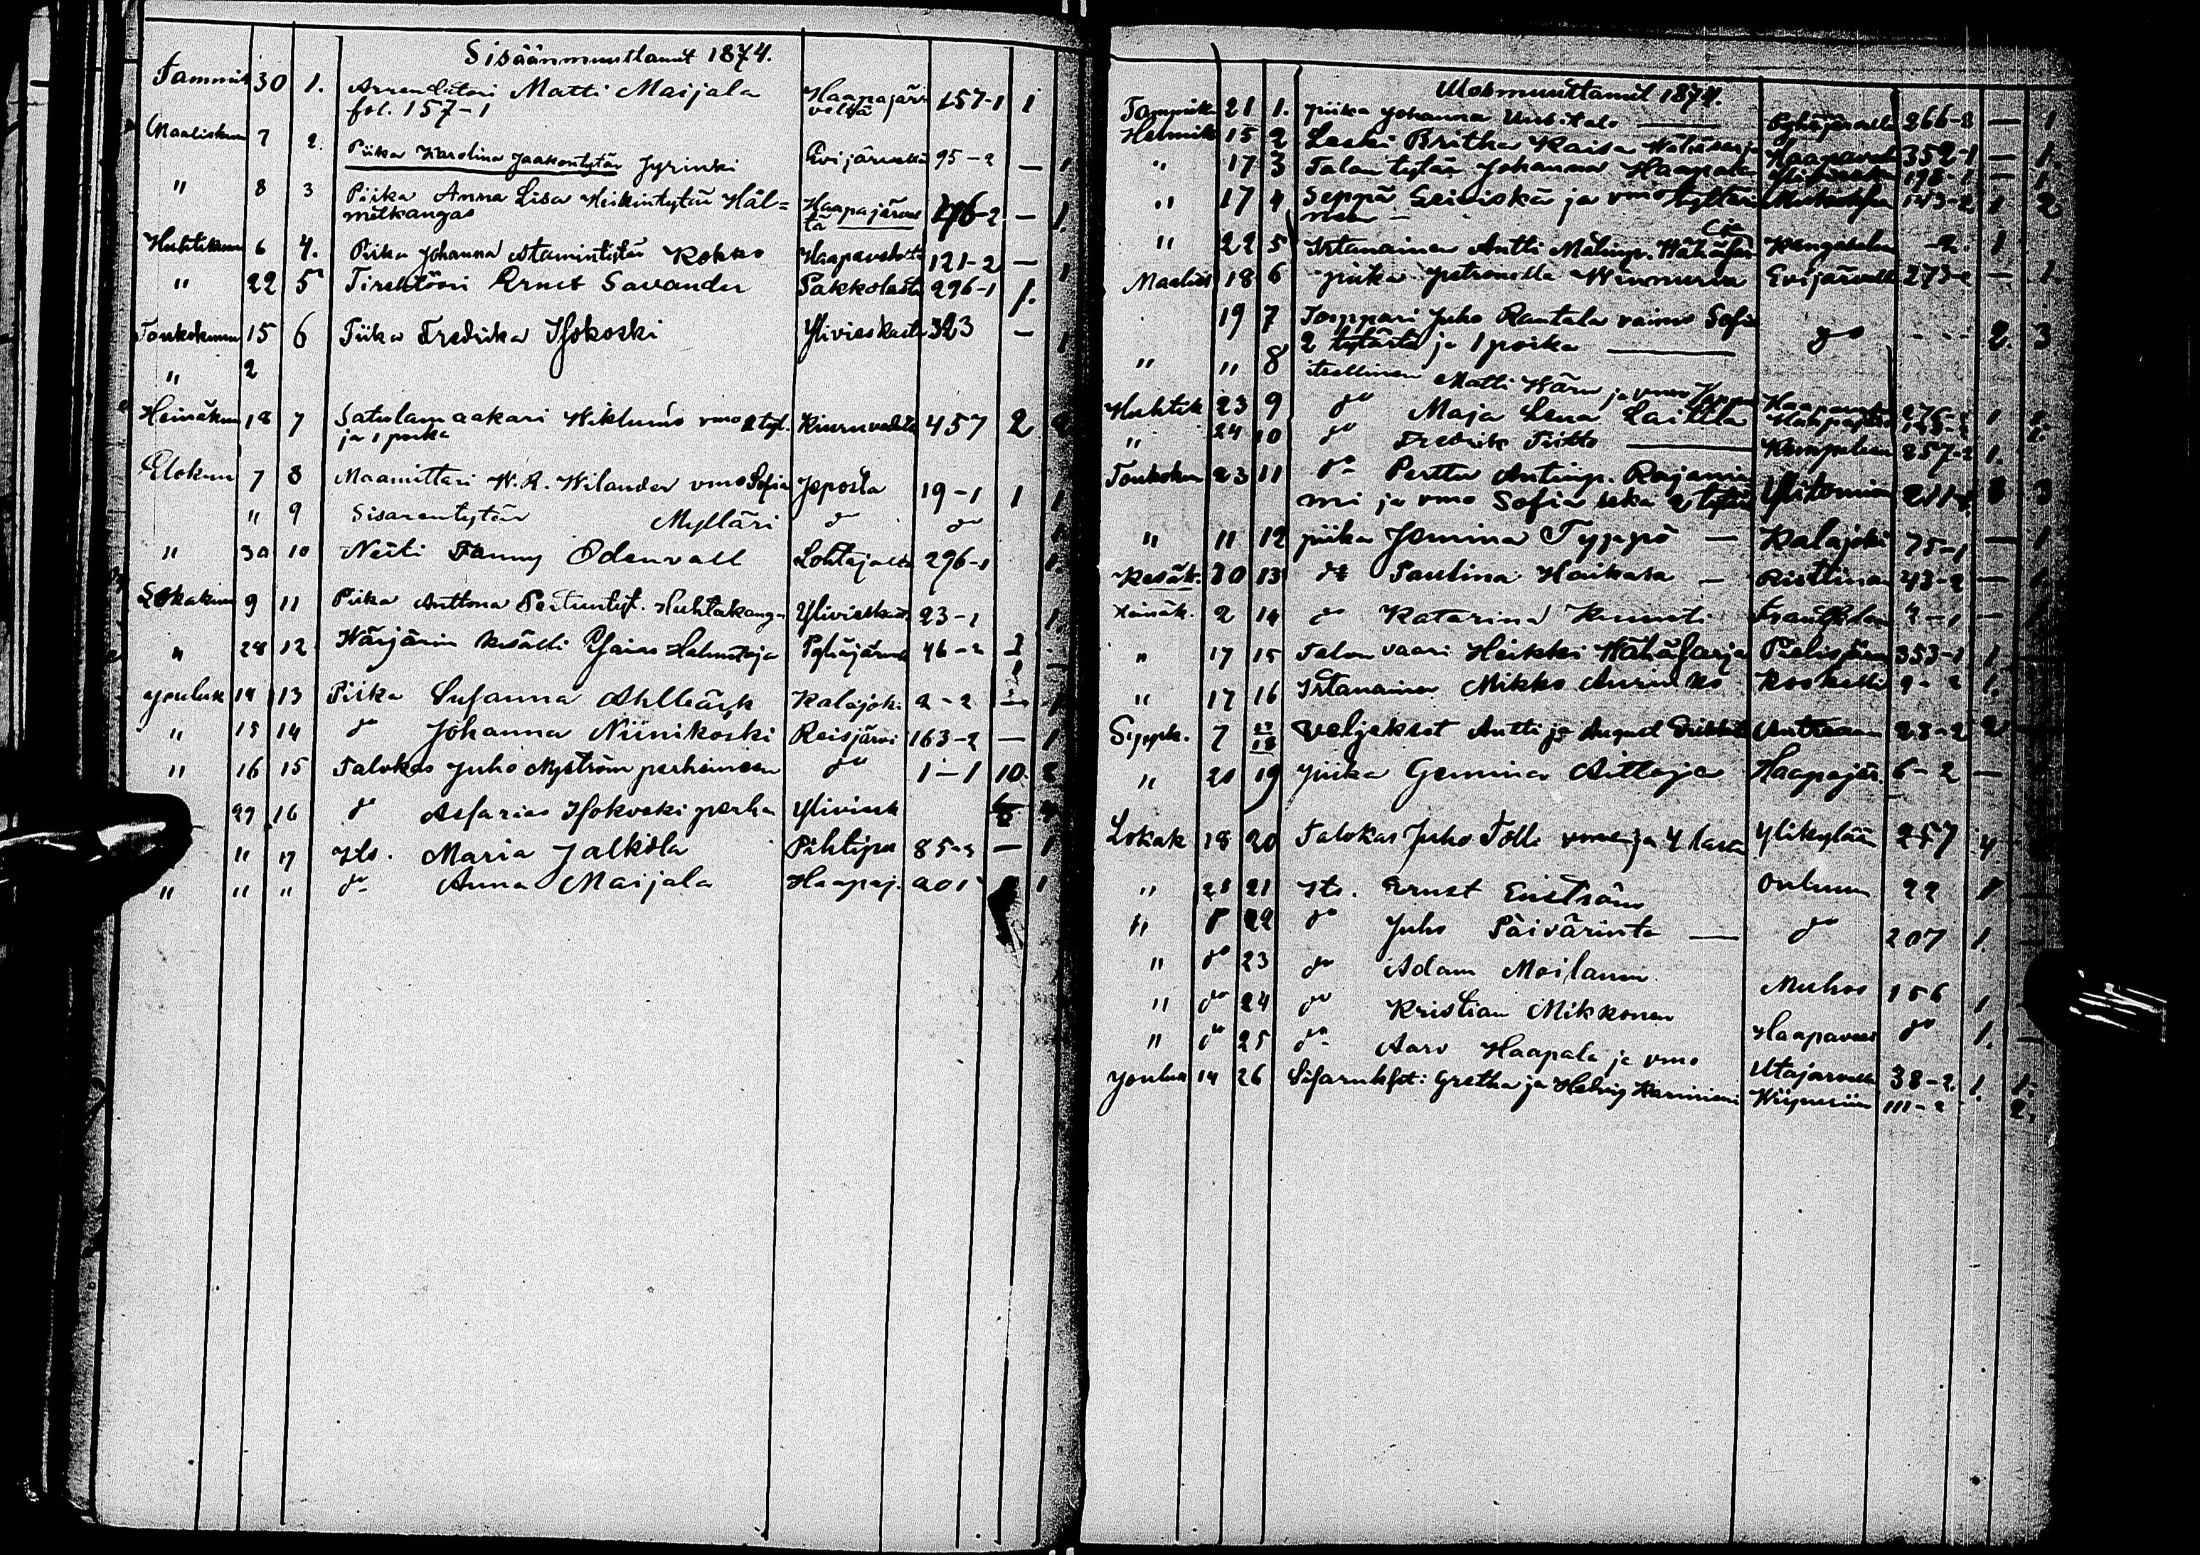 Sisäänmuuttanut 1874.
Tammik 30 1. Arrendatori Matti Maijala Haapajär- 157-1 1
fol. 157-1 veltä
Maaliskuu 7 2. Piika Karolina Jaakontytär Jyrinki Evijärveltä 95-2 — 1
" 8 3 Piika Anna Lisa Heikintytär Häl= Haapajärvel 296-2 — 1.
mälkangas tä
Huhtikuu 6 4. Piika Johanna Atamintytär Kokko Haapavedeltä 121-2 — 1
" 22 5 Tirehtööri Ernst Savander Pakkolasta 296-1 1.
Toukokuun 15 6 Piika Fredrika Isokoski Ylivieskasta 323 — 1
" 2
Heinäkuu 18 7 Satulamaakari Wiklund vmo 2 tyt. Kiuruvedeltä 457 2
ja 1 poika
Elokuu 7 8 Maamittari W.R. Wilander vmo Sofia Jeposta 19-1 1 1
" 9 Sisarentytär Mylläri do do 1
" 30 10 Neiti Fanny Odenvall Lohtajalta 296-1 1.
Lokakuu 9 11 Piika Anttona Pertuntyt. Huhtakang- Ylivieskasta 23-1 1
" 28 12 Wärjärin kesälli Halmetoja Pyhäjärvel 46-2 1
Jouluk 14 13 Piika Susanna Ahlbäck Kalajok. 2-2 — 1
" 15 14 do Johanna Niinikoski Reisjärvi 163-2 — 1
" 16 15 Talokas Juho Nyström perhineen do 1-1 10. 2
29 16 do Asarias Isokoski perh. Yliviesk
" 17 Its. Maria Jalkola Pihtipu 85-2 — 1
" " " do Anna Maijala Haapaj. 201 1
Uosmuuttanut 1874.
Tammik 21 1. piika Johanna Uusitalo — Pyhäjärvelle 266-3 — 1
Helmik 15 2 Leski Britha Kaisa Haapavede 352-1 — 1.
" 17 3 Talon tytär Johanna Haapala 178-1 — 1
" 17 4 Seppä ja vmo tyttäri- 143-2 1 2
neen —
" 22 5 Itstanainen Antti Matinp. Wähäsar Kangasala -2. 1
Maalisk 18 6 piika Petronella Evijärvelle 273-2 — 1.
19 7 Torppari Juho Rautala vaimo Sofia
2 tytärtä ja 1 poika — do - - - 2. 3
" " 8 itsellinen Matti Wäre ja vmo Haapavede 276-2 1 1.
Huhtik 23 9 do Maja Lena Laitila 143-2 1.
" 24 10 do Fredrik — Kempeleen 257-2 1.
Toukokuu 23 11 do Perttu Antinp. Rajanie-
mi ja vmo Sofia seka 2 tytär Ylitornion 211-2 3
" 11 12 piika Jemina Typpö — Kalajoki 75-1 — 1
Kesäk. 30 13 do Paulina Haikara — Ristiinan 43-2 — 1
Heinäk. 2 14 do Katarina 2-1 — 1
" 17 15 Talon vaari Heikki Wähäsarja Pielisjärv 353-1 1
" 17 16 Itstanainen Mikko Aurinko 9-2 1.
Syysk. 7 17/18 Veljekset Antti ja August 28-2 2
" 21 19 piika Gemina Aittoja Haapajär. 6-2 —
Lokak 18 20 Talokas Juho Tölli vmo ja 4 lasta Ylikylää 257 4.
" 21 21 Its. Ernst Enström Ouluun 22 1
" 8 22 do Juho Päivärinta — do 207 1.
" do 23 do Adam Moilanen Muhos 156 1
" do 24 do Kristian Mikkonen Haapavesi do 1.
" do 25 do Aaro Haapala ja vmo Utajärvelle 38-2. 1. 1.
Jouluk 14 26 Sisarukset: Gretha ja Hedvig Wiipuriin 111-2 2.